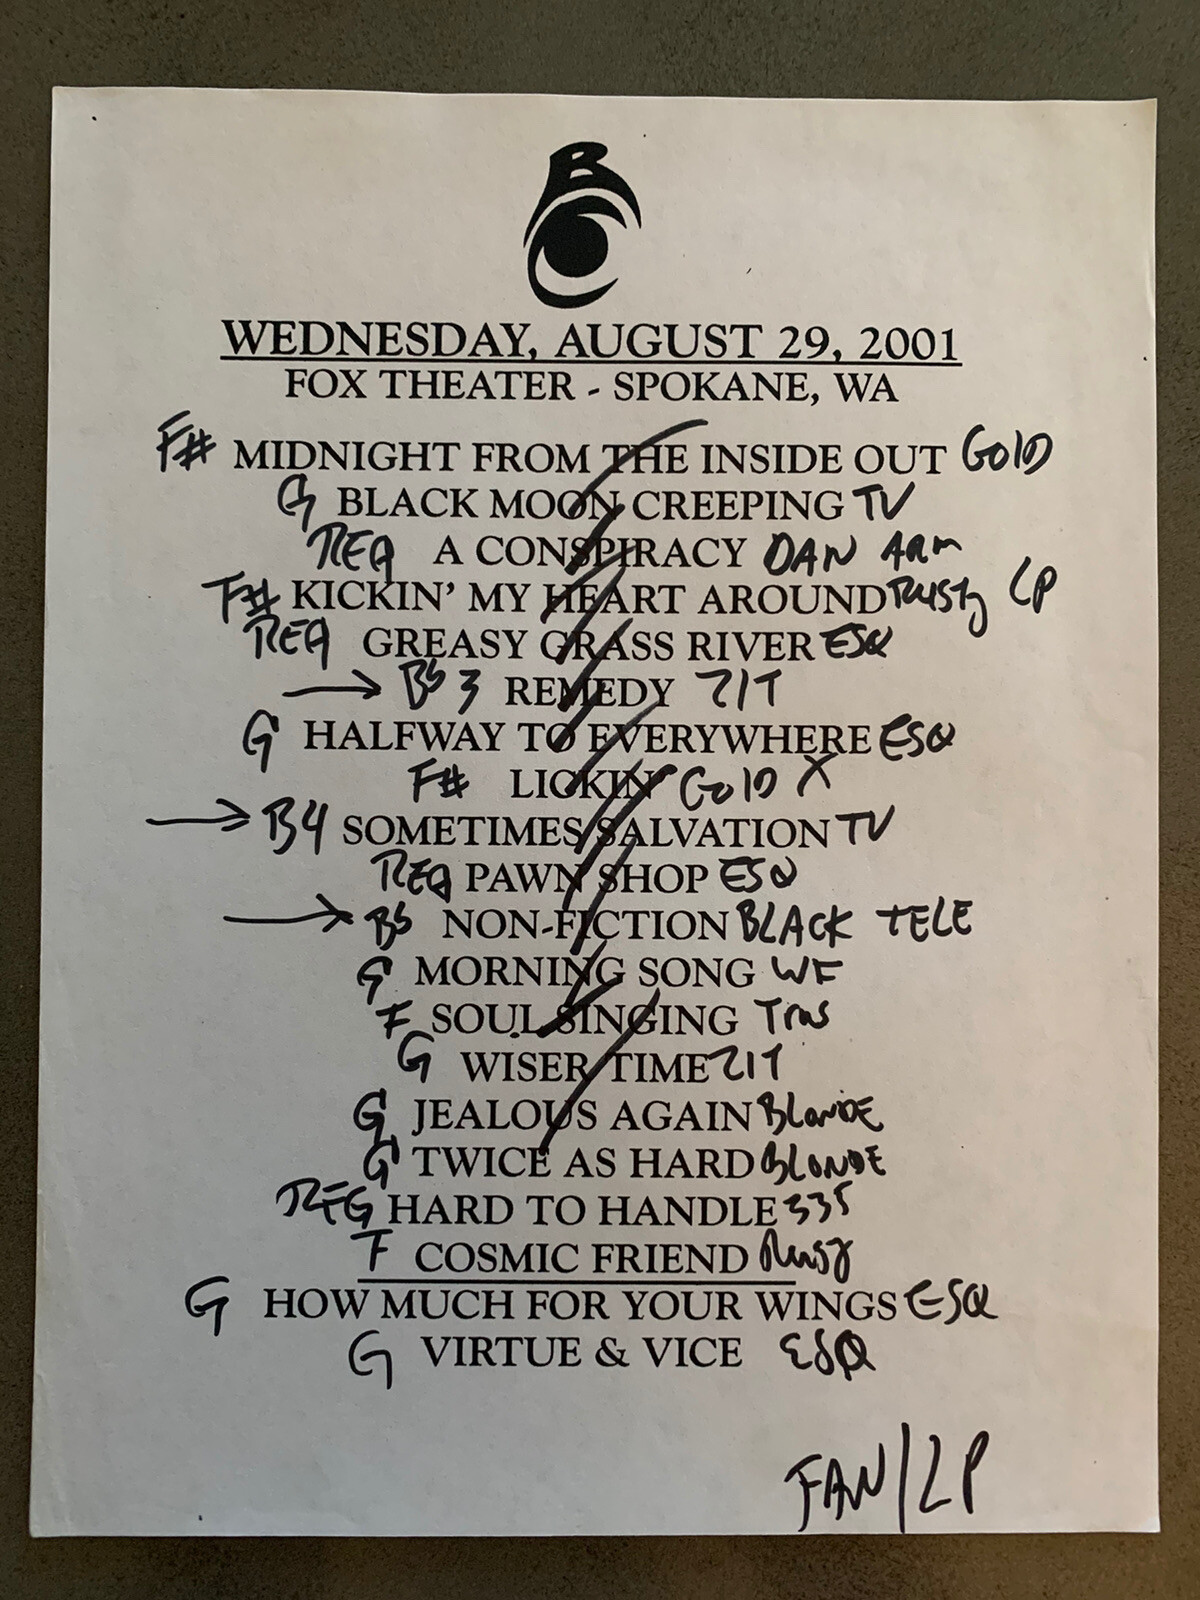 B
WEDNESDAY, AUGUST 29, 2001
FOX THEATER - SPOKANE, WA
F# MIDNIGHT FROM THE INSIDE OUT GOLD
G BLACK MOON CREEPING TV
REG A CONSPIRACY DAN ARM
F# KICKIN' MY HEART AROUND RUSTY LP
REG GREASY GRASS RIVER ESQ
REMEDY ZIT
G HALFWAY TO EVERYWHERE ESQ
F# LICKIN' GOLD X
B4 SOMETIMES SALVATION TV
REG PAWN SHOP ESQ
NON-FICTION BLACK TELE
G MORNING SONG WF
F SOUL SINGING
G WISER TIME ZIT
G JEALOUS AGAIN BLONDE
G TWICE AS HARD BLONDE
REG HARD TO HANDLE 335
F COSMIC FRIEND
G HOW MUCH FOR YOUR WINGS ESQ
G VIRTUE & VICE ESQ
FAN/LP